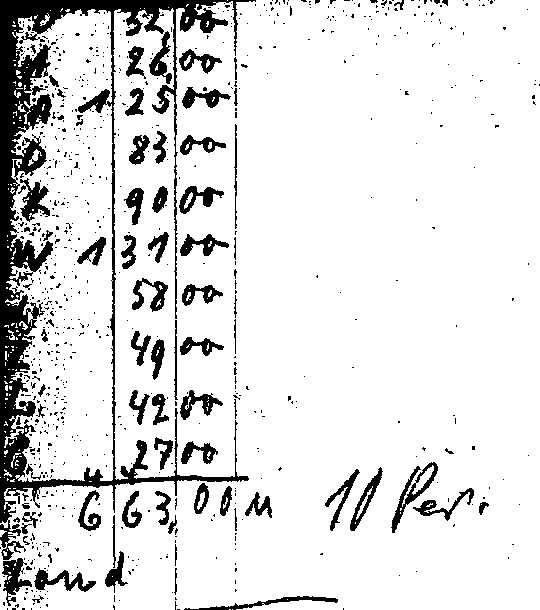 32,00
26,00
A 125 00
D 83 00
K 90 00
W 131 00
58 00
49 00
42 00
27 00
663,00 M 10 Per.
Land